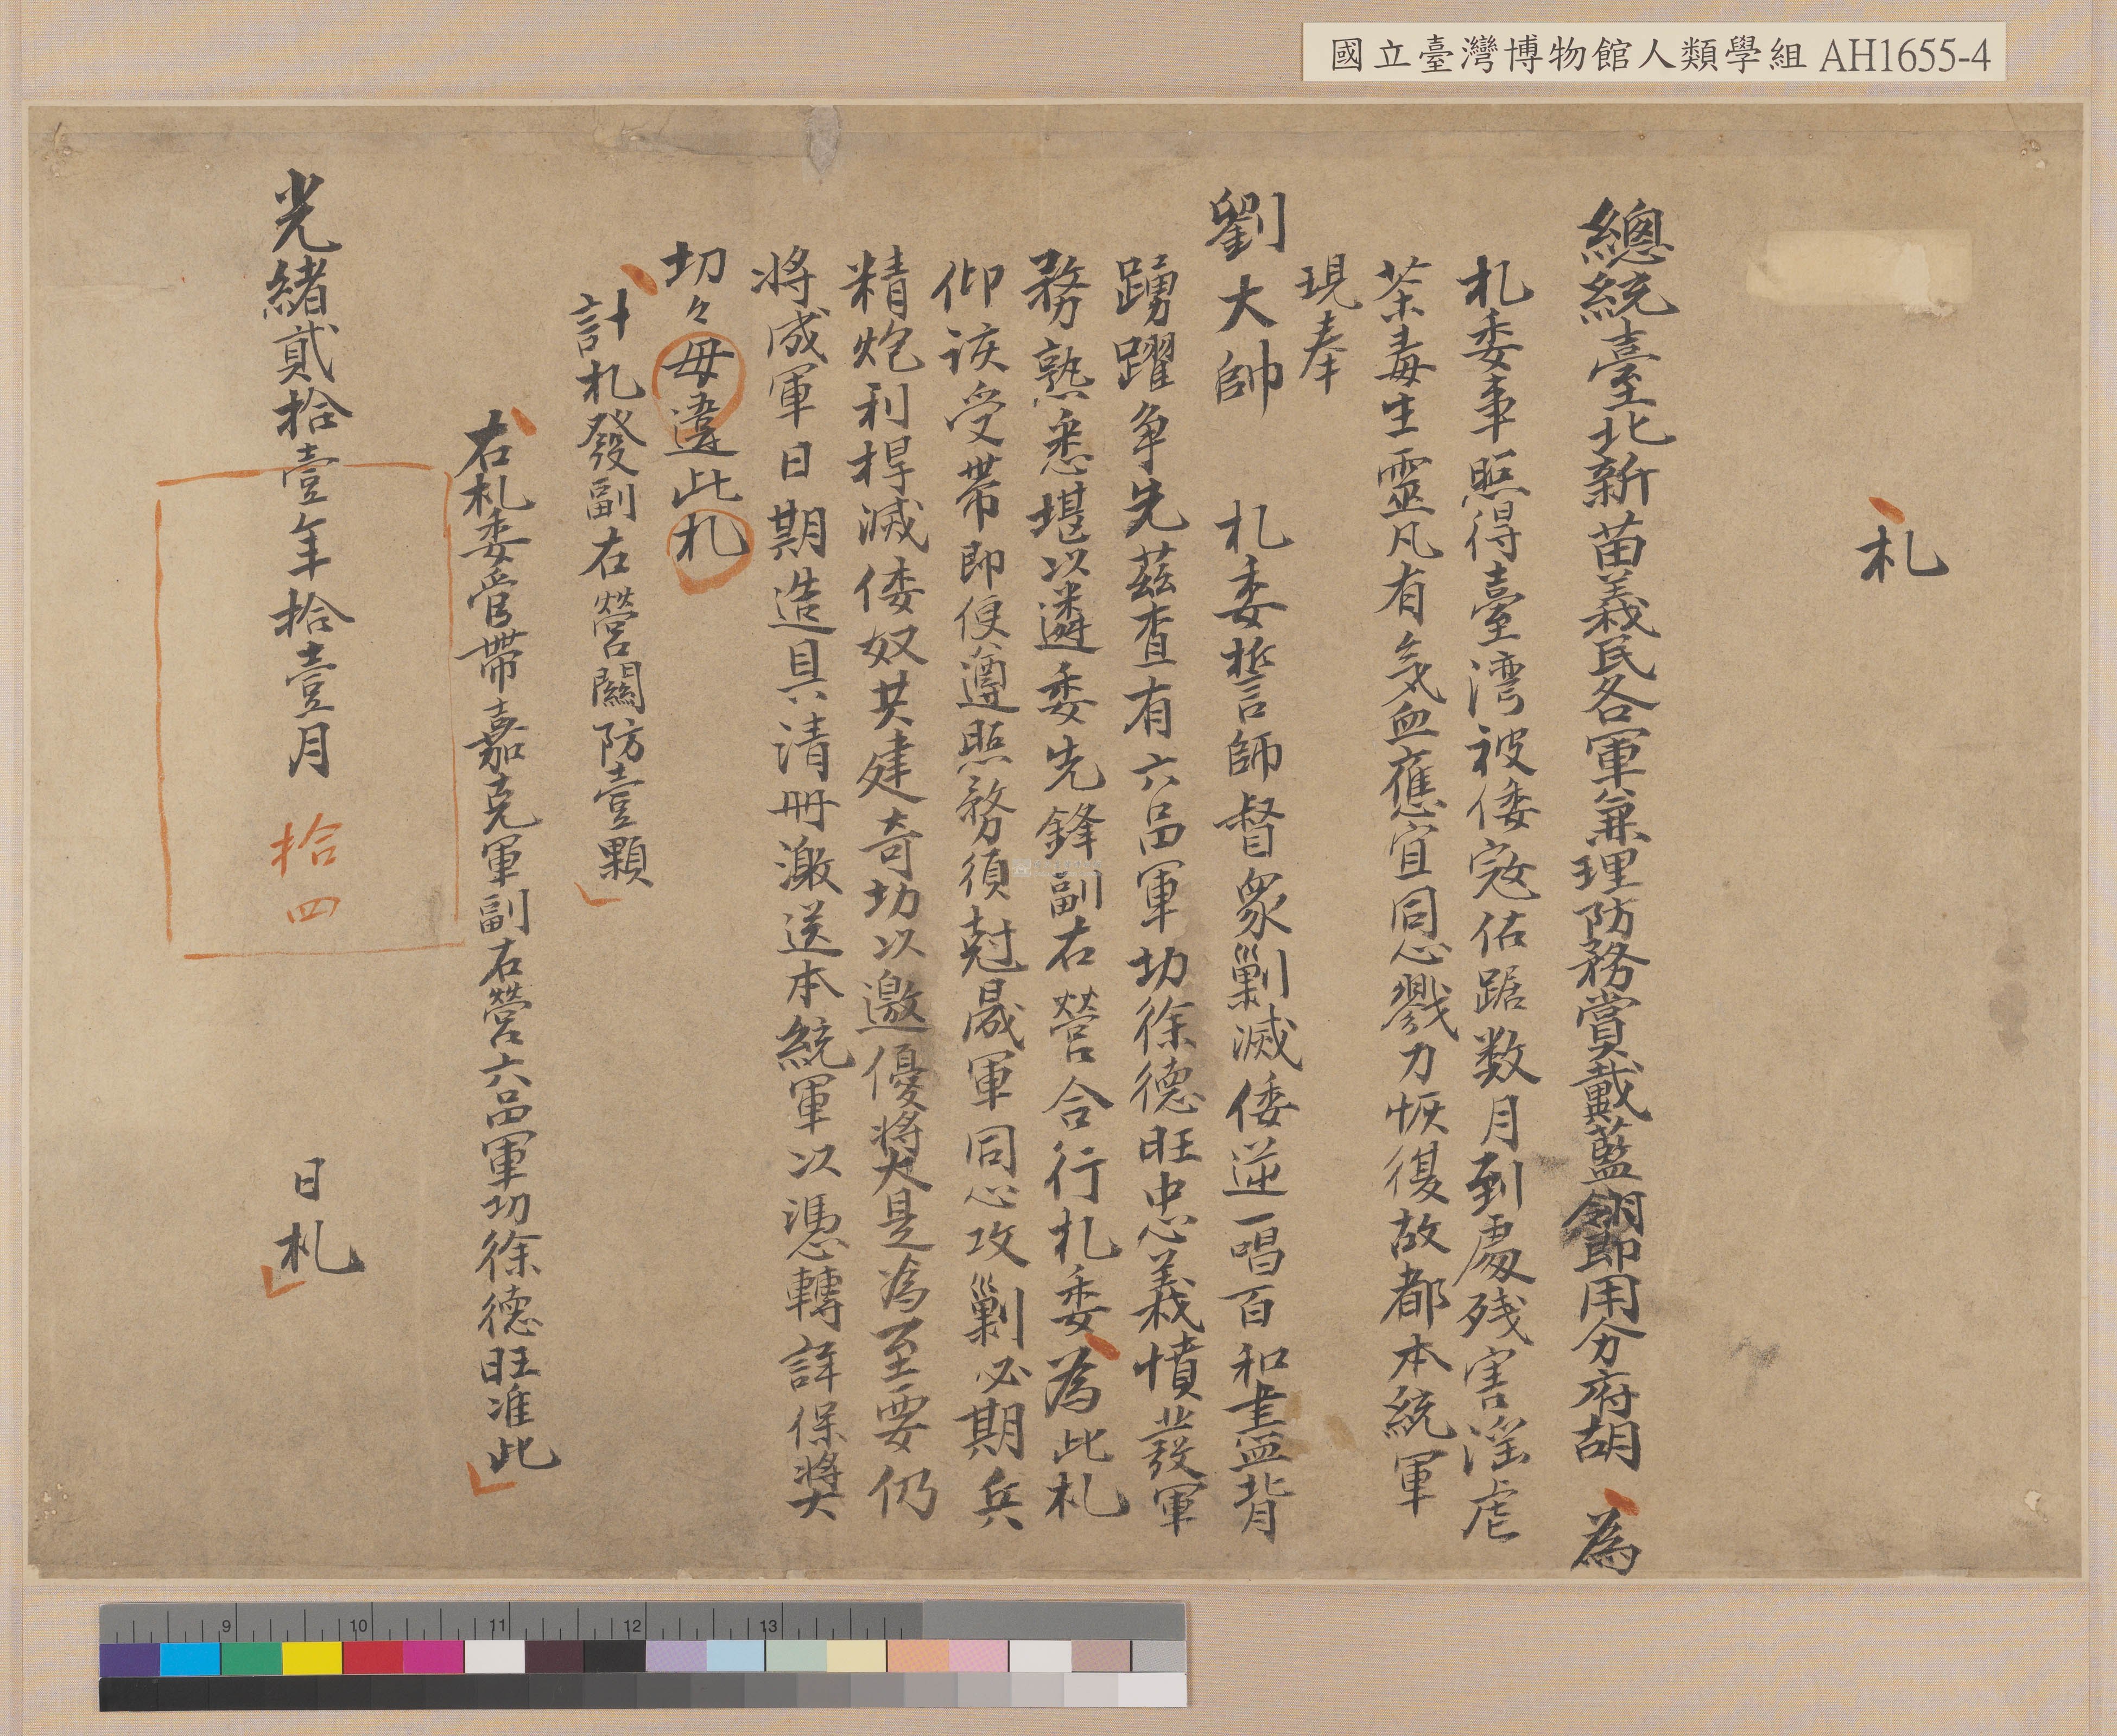 國立臺灣博物館人類學組 AH1655-4
札
總統臺北新苗義民各軍兼理防務賞戴藍翎即用分府胡 為
札委事照得臺湾被倭寇佔踞数月到處残害淫虐
荼毒生靈凡有気血應宜同心戮力恢復故都本統軍
現奉
劉大帥 札委誓師督衆剿滅倭逆一唱百和盡皆
踴躍争先茲查有六品軍功徐德旺忠義憤發軍
務熟悉堪以遴委先鋒副右營合行札委為此札
仰该受带即便遵照務須尅晟軍同心攻剿必期兵
精炮利捍滅倭奴共建奇功以邀優獎是為至要仍
將成軍日期造具清冊激送本統軍以憑轉詳保獎
切々毋違此札
計札發副右營關防壹顆
右札委管帶嘉克軍副右營六品軍功徐德旺准此
光緒貳拾壹年拾壹月 拾四 日札
9 10 11 12 13